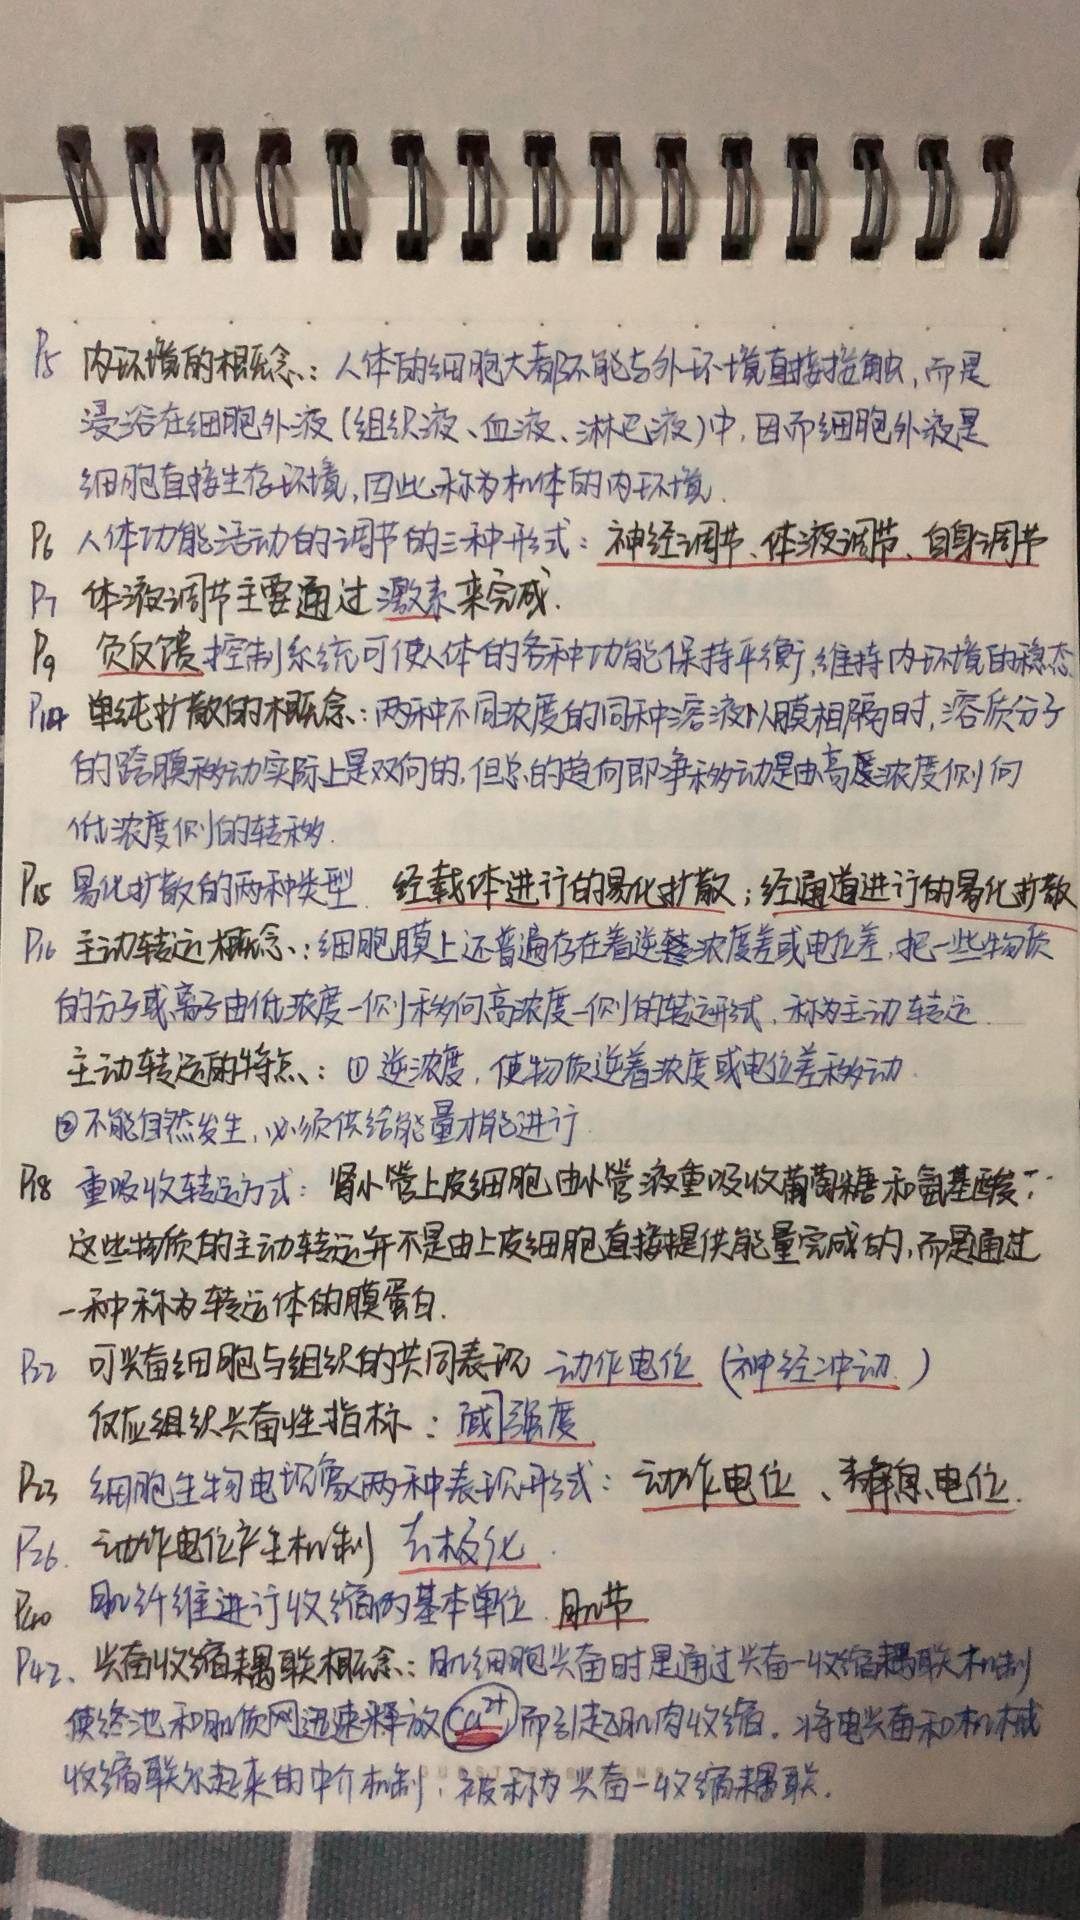 P5 内环境的概念：人体的细胞大都不能与外环境直接接触,而是
浸浴在细胞外液(组织液、血液、淋巴液)中,因而细胞外液是
细胞直接生存环境,因此称为机体的内环境.
P6 人体功能活动的调节的三种形式：神经调节、体液调节、自身调节
P7 体液调节主要通过激素来完成.
P9 负反馈控制系统可使人体的各种功能保持平衡,维持内环境的稳态
P14 单纯扩散的概念：两种不同浓度的同种溶液以膜相隔时,溶质分子
的跨膜移动实际上是双向的,但总的趋向即净移动是由高浓度侧向
低浓度侧的转移.
P15 易化扩散的两种类型 经载体进行的易化扩散；经通道进行的易化扩散
P16 主动转运概念：细胞膜上还普遍存在着逆浓度差或电位差,把一些物质
的分子或离子由低浓度一侧移向高浓度一侧的转运形式,称为主动转运
主动转运的特点：①逆浓度,使物质逆着浓度或电位差移动
②不能自然发生,必须供给能量才能进行
P18 重吸收转运方式：肾小管上皮细胞由小管液重吸收葡萄糖和氨基酸
这些物质的主动转运并不是由上皮细胞直接提供能量完成的,而是通过
一种称为转运体的膜蛋白.
P22 可兴奋细胞与组织的共同表现 动作电位 (神经冲动.)
反应组织兴奋性指标：阈强度
P23 细胞生物电现象两种表现形式：动作电位、静息电位.
P26. 动作电位产生机制 去极化.
P40 肌纤维进行收缩的基本单位.肌节
P42、兴奋收缩耦联概念：肌细胞兴奋时是通过兴奋一收缩耦联机制
使终池和肌质网迅速释放Ca²⁺而引起肌肉收缩.将电兴奋和机械
收缩联系起来的中介机制,被称为兴奋一收缩耦联.